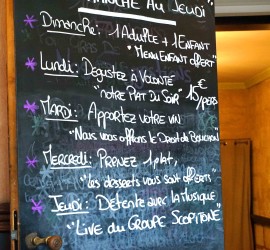 DIMANCHE AU JEUDI"
Dimanche: 1 Adulte + 1 Enfant
"Menu Enfant offert"
Lundi: Degustez à Volonté
"notre Plat du Soir" 15€/pers
Mardi: Apportez votre vin
"Nous vous offrons le Droit de Bouchon"
Mercredi: Prenez 1 plat,
"les desserts vous sont offerts"
Jeudi: Détente avec la Musique
"Live du Groupe Scopitone"